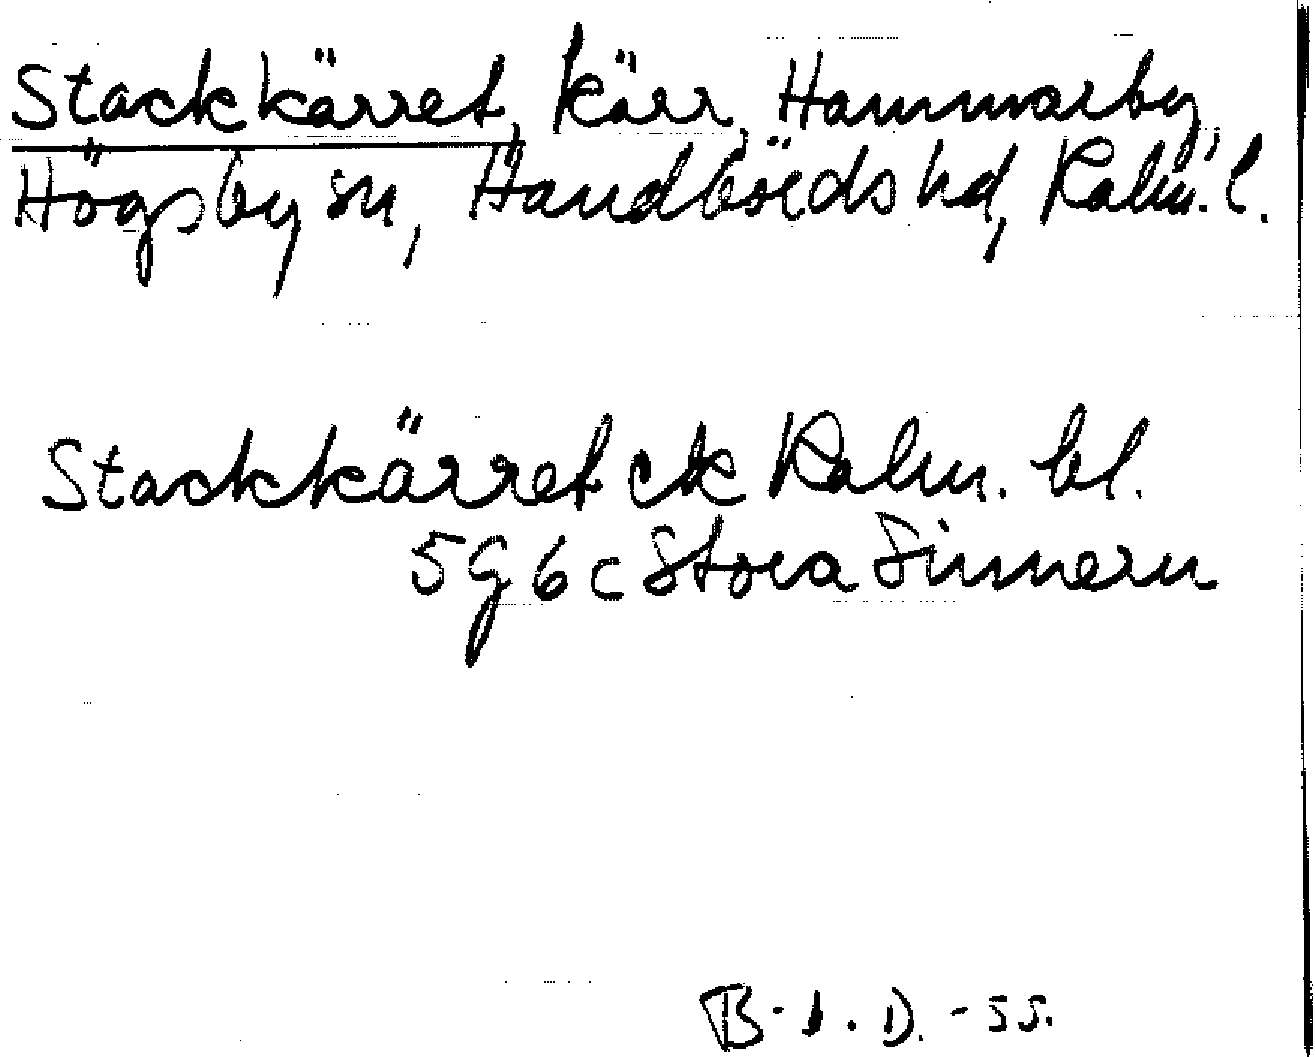 Stackkärret, kärr, Hammarby,
Högsby sn, Handbörds hd, Kalm. l.
Stackkärret ek Kalm. bl.
5g 6c Stora Sinnern
B-I. D. -55.